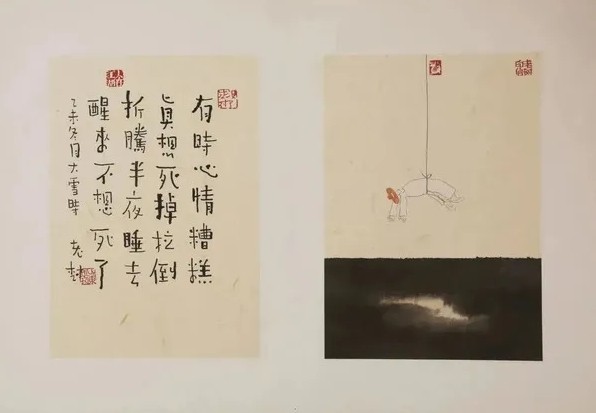 有時心情糟糕
眞想死掉拉倒
折騰半夜睡去
醒來不想死了
乙未冬月大雪時 老樹